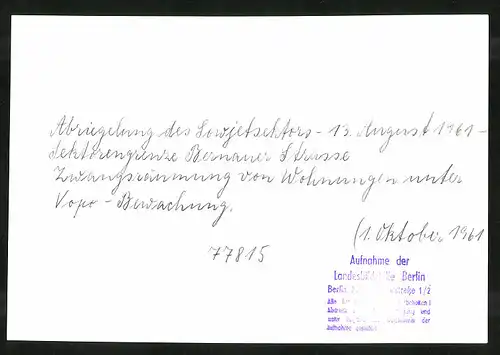 Abriegelung des Sowjetsektors - 13. August 1961 -
Sektorengrenze Bernauer Strasse
Zwangsräumung von Wohnungen unter
Vopo - Bewachung.
(1. Oktober 1961
77815
Aufnahme der
Berlin
Berlin 1/2
Alle
und
unter der